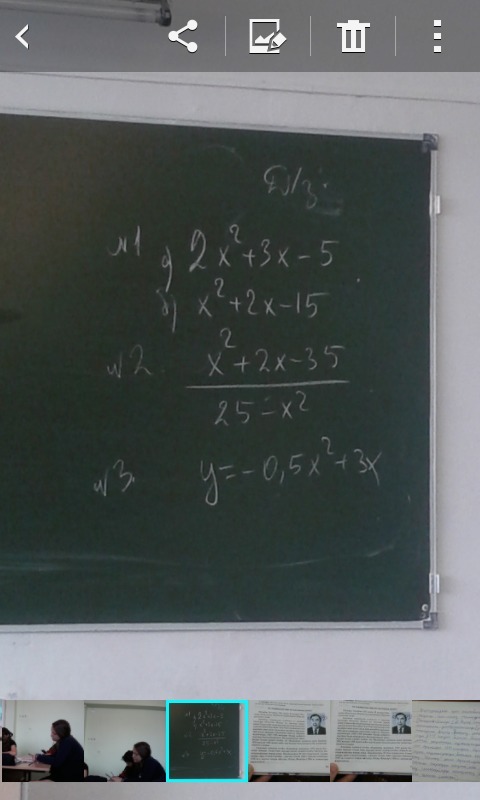 Д/З:
№1 а) 2x²+3x-5
б) x²+2x-15
№2. x²+2x-35
25-x²
№3. y=-0,5x²+3x